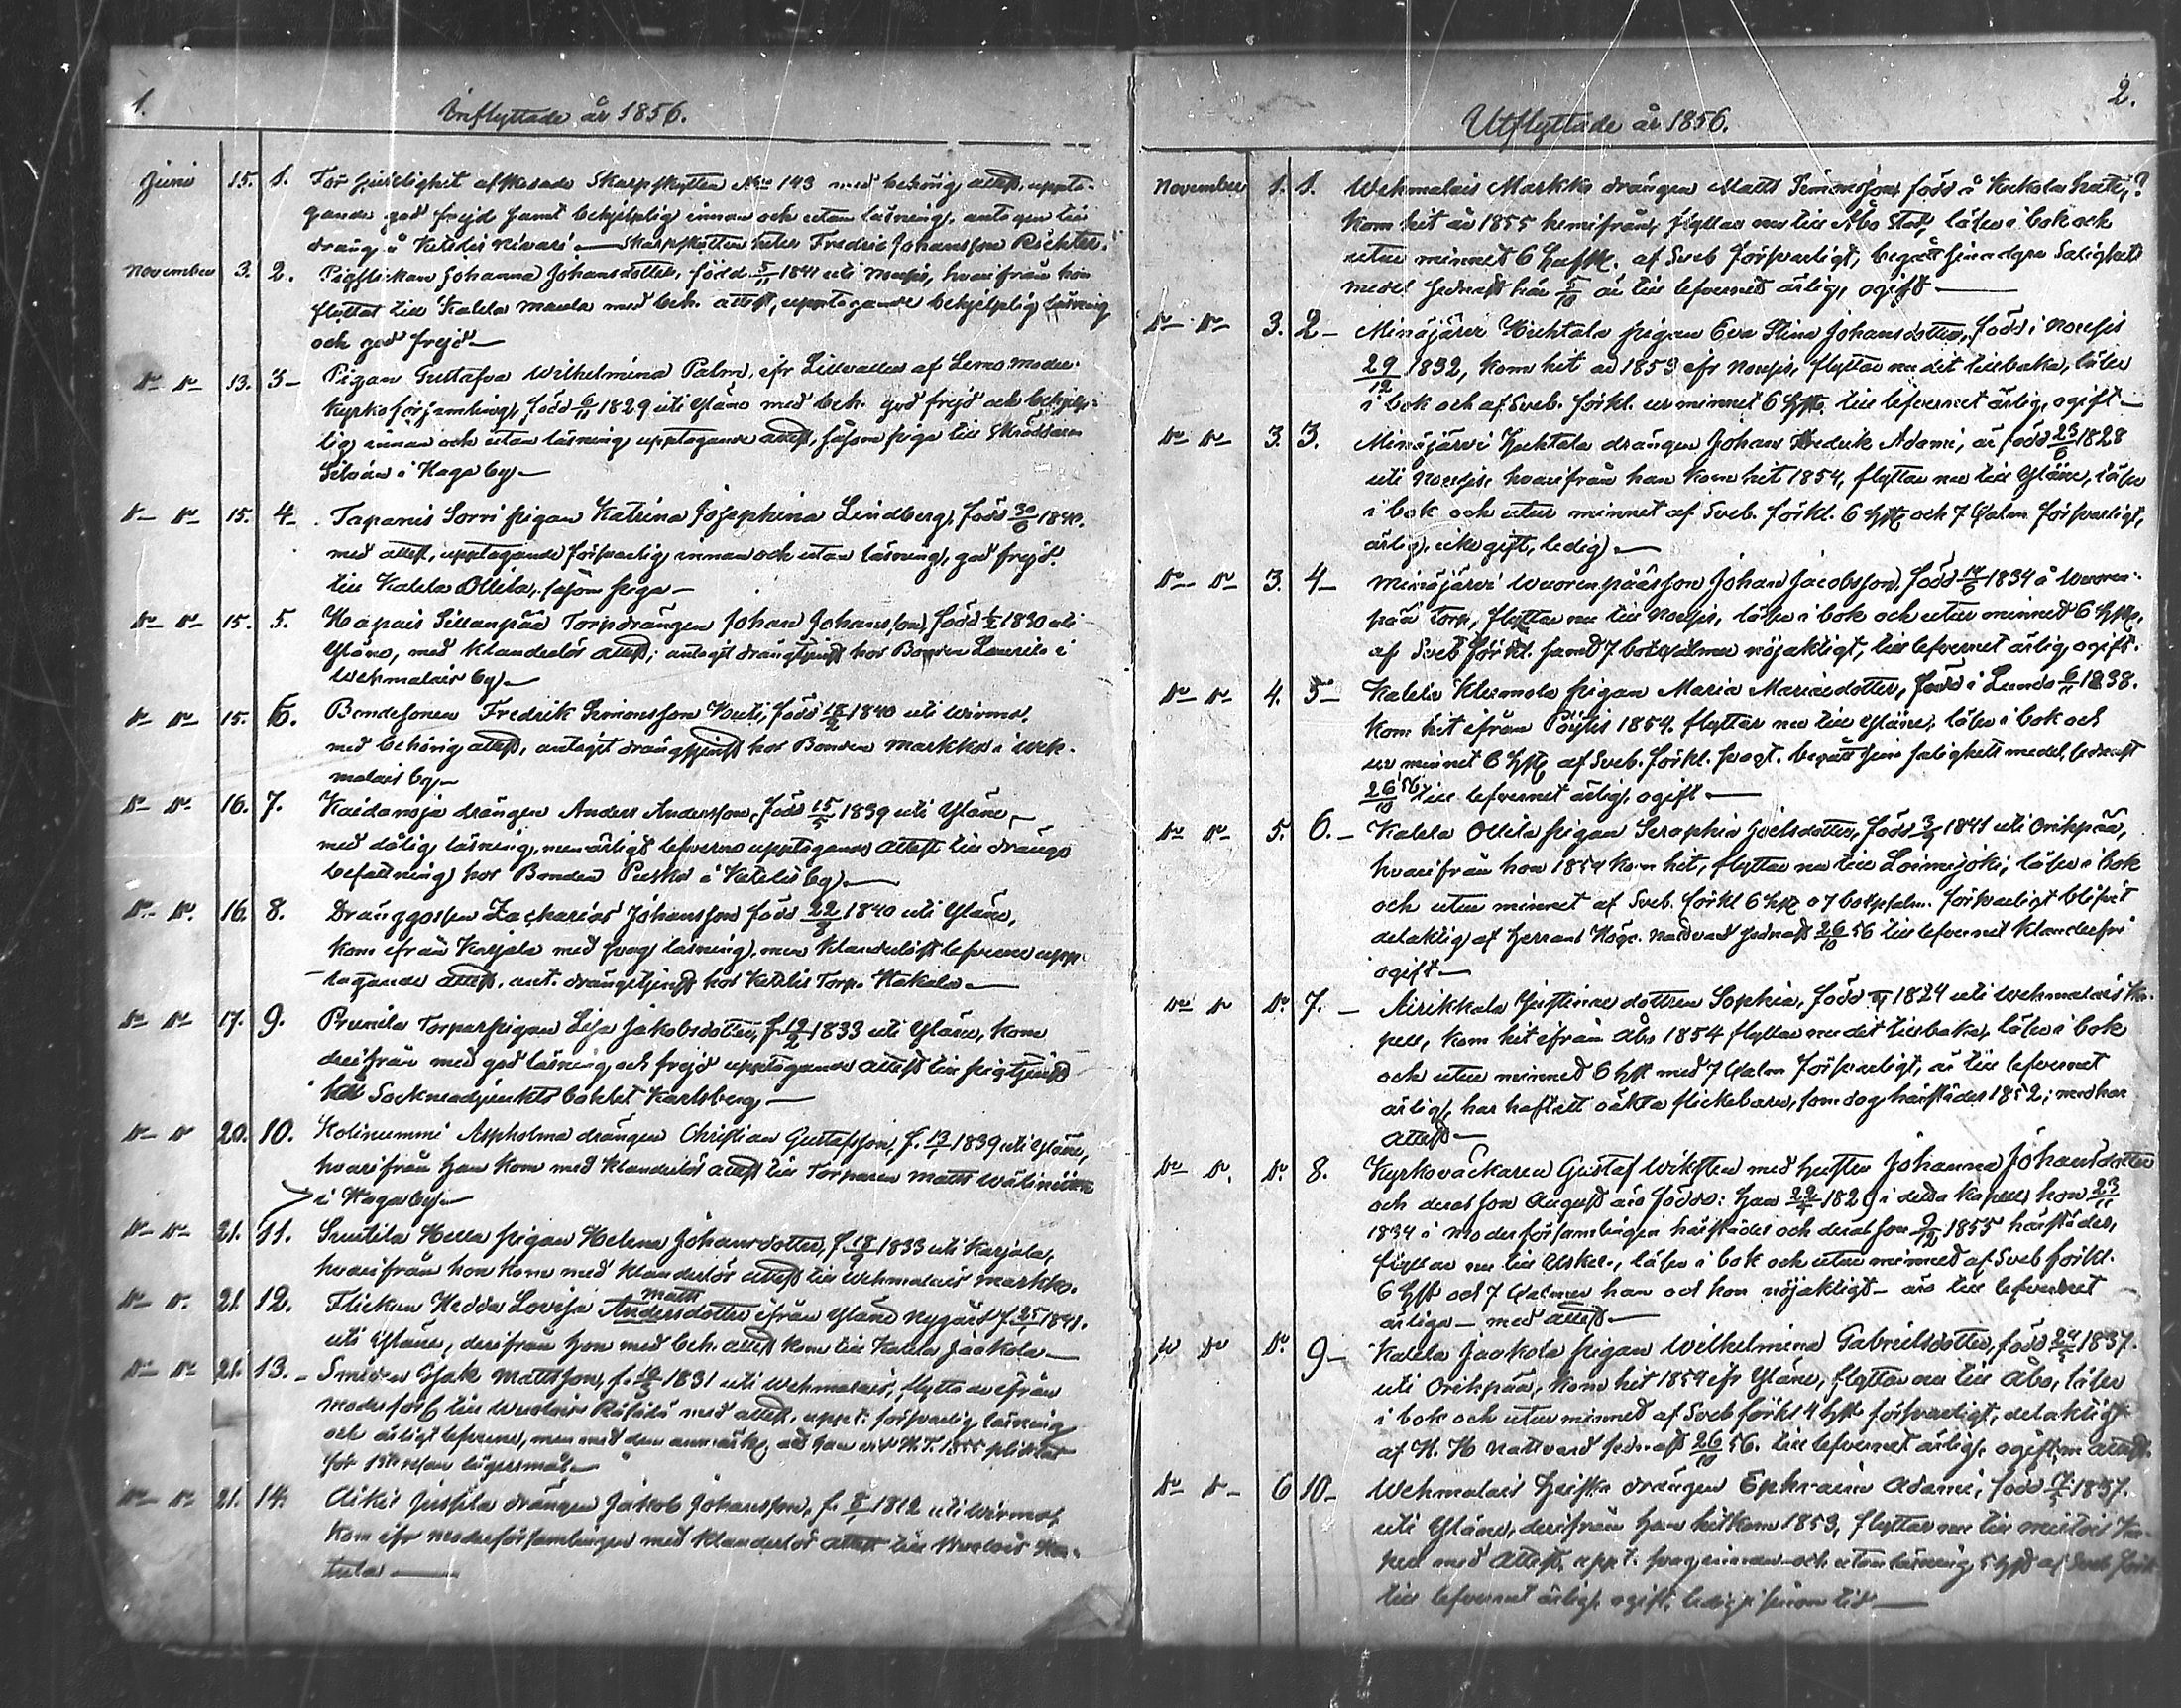 1.
Inflyttade år 1856.
Juni 15. 1. För sjuklighet afskedade Skarpskytten No 143 med behörig attest, uppta-
gande god frejd samt behjelplig innan och utan läsning, antagen till
dräng å Ketelis Nivari. — Skarpskytten heter Fredric Johansson Richter.
November 3. 2. Pigflickan Johanna Johansdotter, född 5/11 1841 uti Nousis, hvarifrån hon
flyttat till Kalela med beh. attest, upptagande behjelplig läsning
och god frejd —
Do Do 13. 3 – Pigan Gustafva Wilhelmina Palm, ifr Lillvallen af Lemo Moder-
kyrkoförsamling, född 6/11 1829 uti Yläne med beh. god frejd och behjelp-
lig innan och utan läsning upptagande attest, såsom piga till Skräddaren
i Haga by —
Do Do 15. 4 – Tapanis Sorri pigan Katrina Josephina Lindberg, född 30/6 1840.
med attest, upptagande försvarlig innan och utan läsning, god frejd.
till Kalela Ollila, såsom piga —
Do Do 15. 5. Sillanpää Torpdrängen Johan Johansson, född 1830 uti
Yläne, med klanderlös attest; antagit drängtjenst hos Bonden Laurila i
Wehmalais by —
Do Do 15. 6. Bondesonen Fredrik Simonsson Knuti, född 18/2 1840 uti Wirmo,
med behörig attest, antagit drängtjenst hos Bonden Markko i Weh-
malais by —
Do Do 16. 7. Kaidanoja drängen Anders Andersson, född 15/5 1839 uti Yläne,
med dålig läsning, men ärligt lefverne upptagande attest till drängs
befattning hos Bonden i Ketelis by —
Do Do 16. 8. Dränggossen Zacharias Johansson född 22/3 1840 uti Yläne,
kom ifrån Karjala med svag läsning, men klanderlöst lefverne upp-
tagande attest, ant. drängtjenst hos Ketelis Torp. Hakala —
Do Do 17. 9. Prunila Torparpigan Lisa Jakobsdotter, f. 12/2 1833 uti Yläne, kom
derifrån med god läsning och frejd upptagande attest till pigtjenst
hos Socknadjunkts bohlet Karlsberg —
Do Do 20. 10. Kolinummi Aspholma drängen Christian Gustafsson, f. 13/1 1839 uti Yläne,
hvarifrån han kom med klanderlös attest till Torparen Matts
i Haga by —
Do Do 21. 11. Pigan Helena Johansdotter, f. 18/9 1833 uti Karjala,
hvarifrån hon kom med klanderlös attest till Wehmalais Markko.
Matts
Do Do 21. 12. Flickan Hedda Lovisa Andersdotter ifrån Yläne Nygård f. 25/1 1841.
uti Yläne, derifrån hon med beh. attest kom till Kalela Jaakola —
Do Do 21. 13. – Smeden Isak Mattsson, f. 1831 uti Wehmalais, flyttade ifrån
moderförs. till med attest, uppt: försvarlig läsning
och ärligt lefverne, men med den anmärkn. att han vid H. T. 1855 pliktat
för 1sta resan lägersmål —
Do Do 21. 14. Jussila drängen Jakob Johansson, f. 1812 uti Wirmo,
kom ifr moderförsamlingen med klanderlös attest till
tula —
2.
Utflyttade år 1856.
November 1. 1. Wehmalais Markko drängen Matts Simonsson, född å
kom hit år 1855 hemifrån, flyttar nu till Åbo Stad, läser i bok och
utur minnet 6 hufst. af Sveb försvarligt, begått sina dyra Salighets
medel sednast här 5/10 är till lefvernet ärlig, ogift —
Do Do 3. 2 – Minäjärvi Huhtala pigan Eva Stina Johansdotter, född i Nousis
29/12 1832, kom hit år 1853 ifr Nousis, flyttar nu dit tillbaka, läser
i bok och af Sveb. förkl. ur minnet 6 hfst. till lefvernet ärlig, ogift —
Do Do 3. 3. Minäjärvi Huhtala drängen Johan Fredrik Adami, är född 25/6 1828
uti Nousis, hvarifrån han kom hit 1854, flyttar nu till Yläne, läser
i bok och utur minnet af Sveb. förkl. 6 hfst och 7 Psalm försvarligt,
ärlig, icke gift, ledig —
Do Do 3. 4 – Minäjärvi Wuorenpäässon Johan Jacobsson, född 14/6 1834 å Wuoren-
pää torp, flyttar nu till Nousis, läser i bok och utur minnet 6 hfst.
af Sveb förkl. samt 7 botpsalmer nöjaktigt, till lefvernet ärlig, ogift.
Do Do 4. 5 – Kalela Kleemola pigan Maria Mariædotter, född i Lundo 6/11 1838.
kom hit ifrån Pöytis 1854. flyttar nu till Yläne, läser i bok och
ur minnet 6 hfst af Sveb. förkl. svagt. begått sina salighets medel sednast
26/10 56 till lefvernet ärlig, ogift —
Do Do 5. 6. – Kalela Ollila pigan Seraphia Joelsdotter, född 1841 uti Oripää,
hvarifrån hon 1854 kom hit, flyttar nu till Loimijoki, läser i bok
och utur minnet af Sveb. förkl 6 hfst o 7 botpsalm. försvarligt blifvit
delaktig af Herrans Högv. nattvard sednast 26/10 56 till lefvernet klanderfri
ogift —
Do Do Do 7. – Airikkala Justinæ dottren Sophia, född 1824 uti Wehmalais Ka-
pell, kom hit ifrån Åbo 1854 flyttar nu dit tillbaka, läser i bok
och utur minnet 6 hfst med 7 Psalm försvarligt, är till lefvernet
ärlig, har haft ett oäkta flickebarn, som dog härstädes 1852; med har
attest —
Do Do. Do 8. Kyrkoväcktaren Gustaf Wiksten med hustru Johanna Johansdotter
och deras son August äro födde: han 22/5 182 i detta kapell, hon 23/11
1834 i Moderförsamlingen härstädes och deras son 9/2 1855 härstädes,
flyttar nu till, läser i bok och utur minnet af Sveb förkl.
6 hfst och 7 Psalmer han och hon nöjaktigt – äro till lefvernet
ärliga — med attest —
Do Do Do 9 – Kalela Jaakola pigan Wilhelmina Gabrielsdotter, född 24/5 1837.
uti Oripää, kom hit 1854 ifr Yläne, flyttar nu till Åbo, läser
i bok och utur minnet af Sveb förkl 4 hfst försvarligt, delaktigt
af H. H nattvard sednast 26/10 56. till lefvernet ärlig, ogift, m attest.
Do Do – 6 10 – Wehmalais Heiska drängen Ephraim Adami, född 1837.
uti Yläne, derifrån han hit kom 1853, flyttar nu till Mietois Ka-
pell med attest, uppt: svag innan och utan läsning, 5 hfst af Sveb förk
till lefvernet ärlig, ogift, ledig i sinom tid —